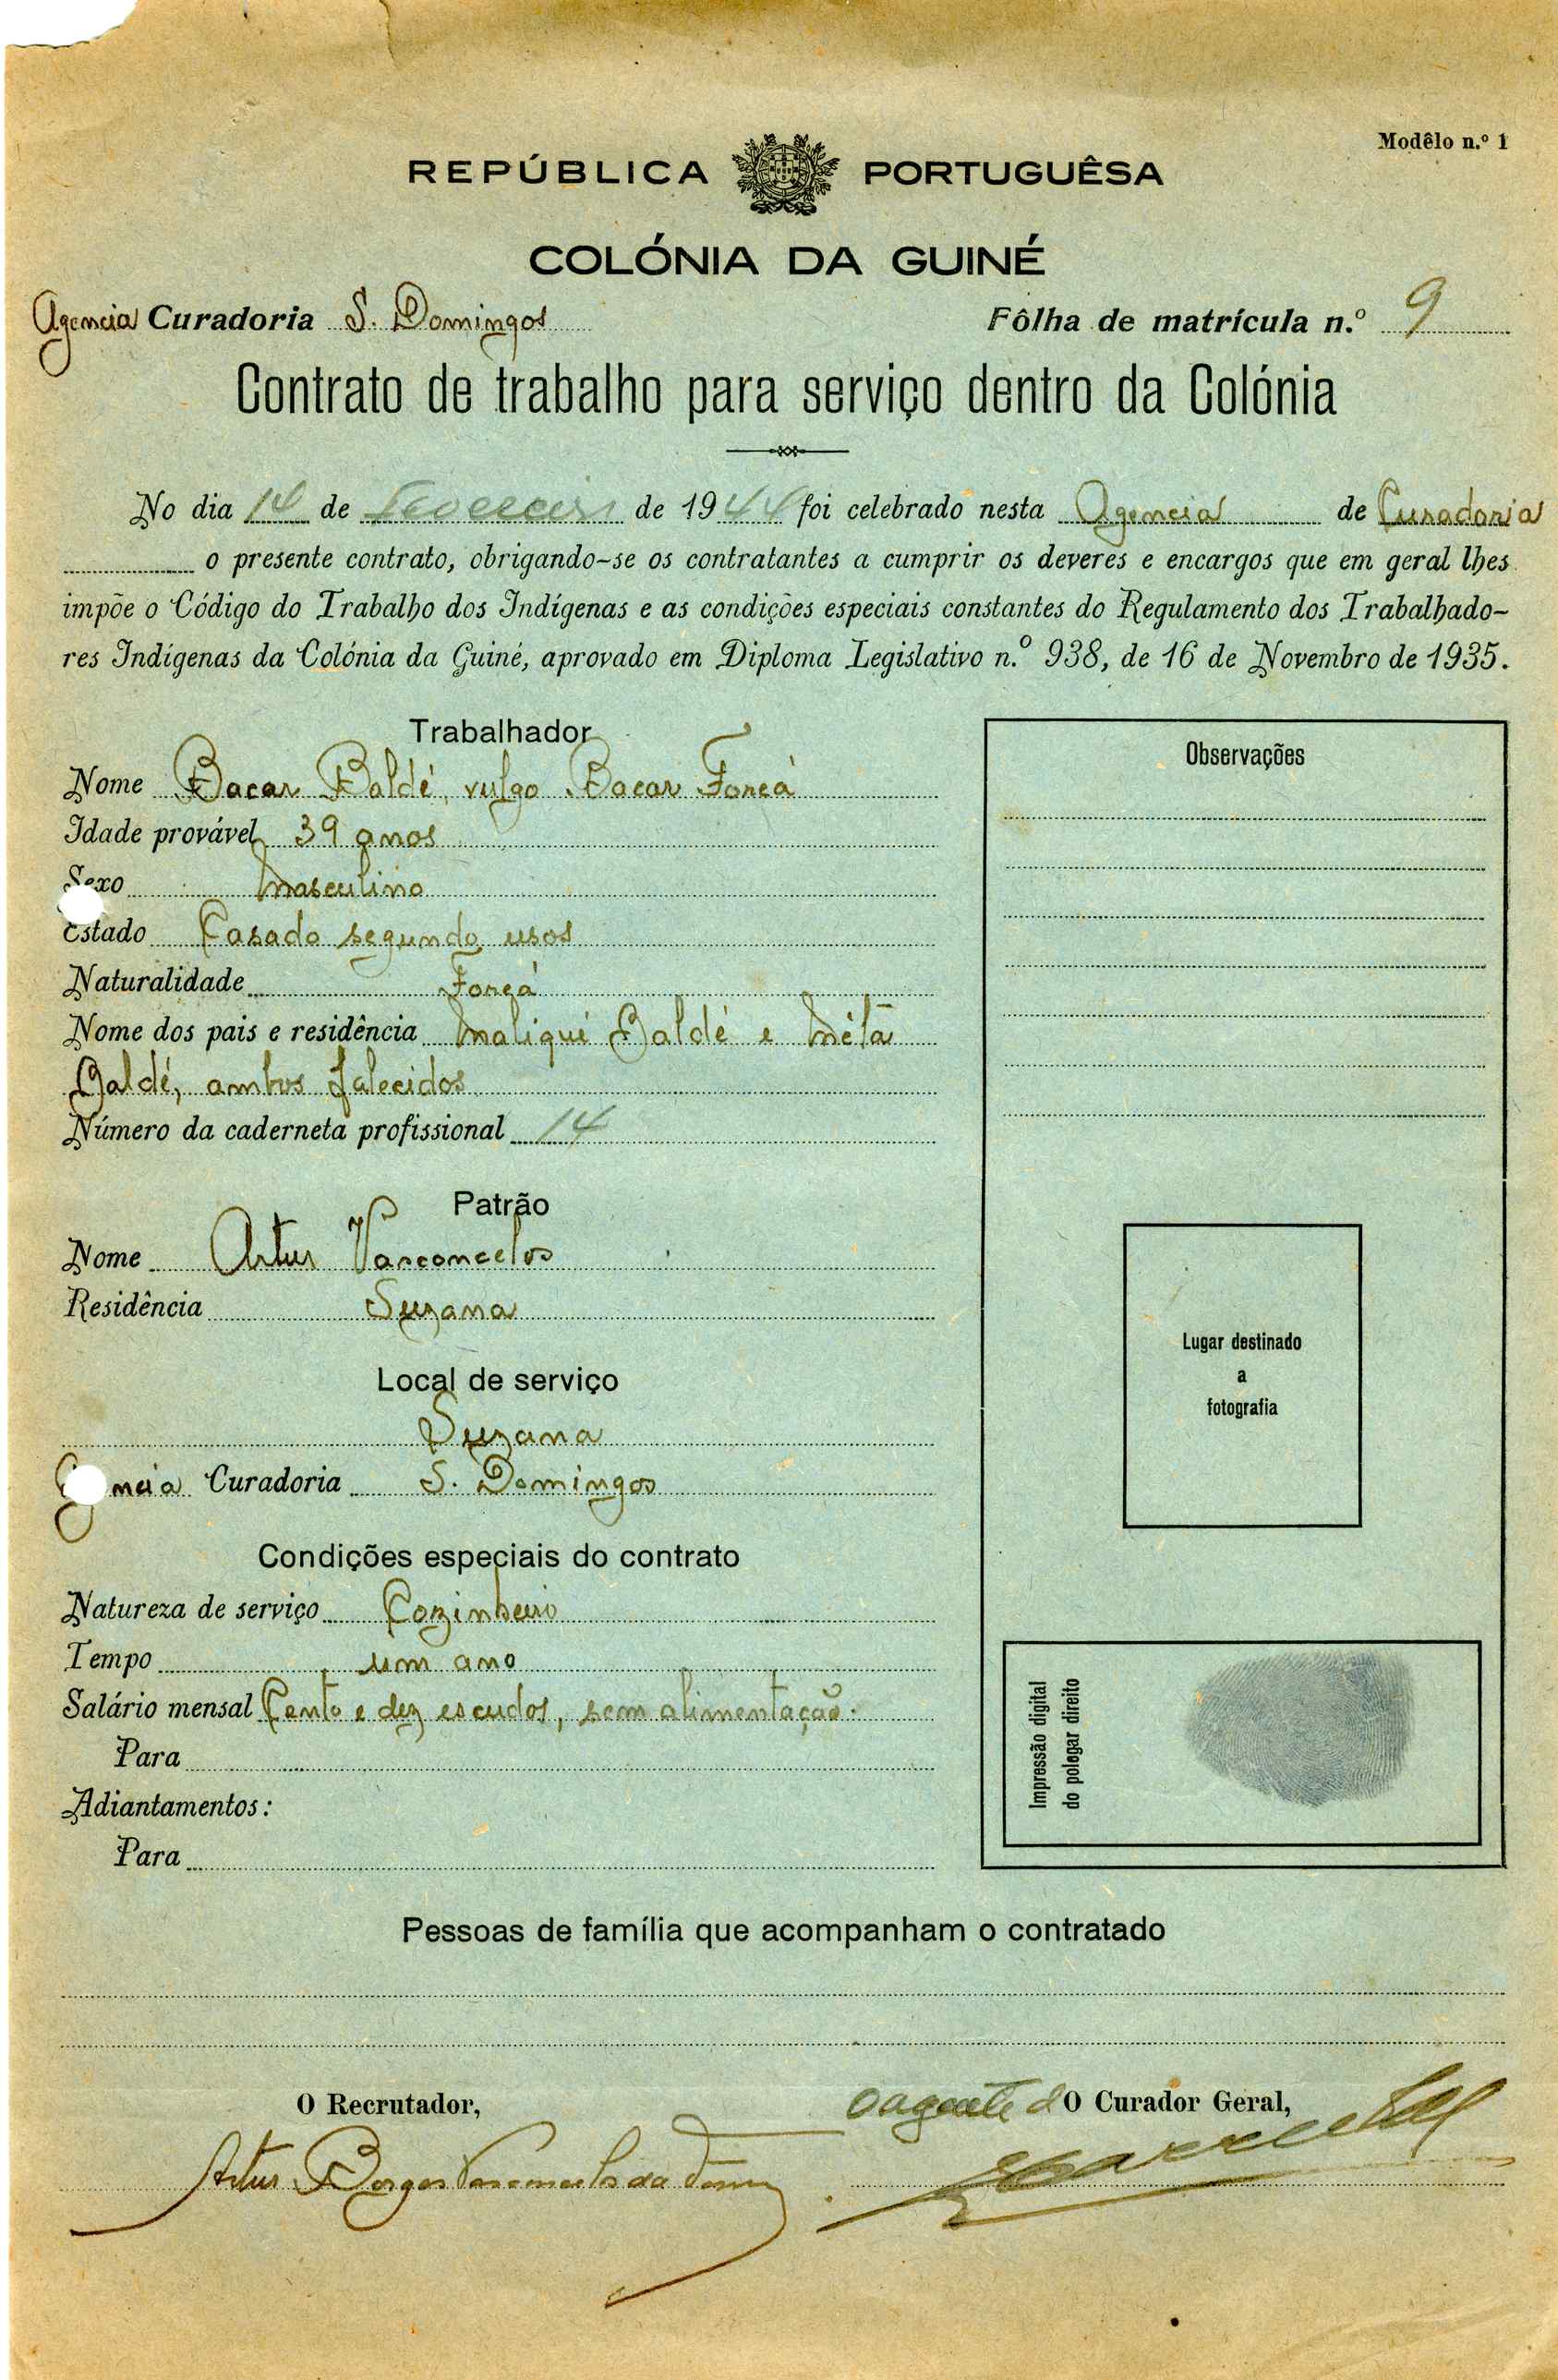 Modêlo n.º 1
REPÚBLICA PORTUGUÊSA
COLÓNIA DA GUINÉ
Agencia Curadoria S. Domingos Fôlha de matrícula n.º 9
Contrato de trabalho para serviço dentro da Colónia
No dia 14 de Fevereiro de 1944 foi celebrado nesta Agencia de Curadoria
o presente contrato, obrigando-se os contratantes a cumprir os deveres e encargos que em geral lhes
impõe o Código do Trabalho dos Indígenas e as condições especiais constantes do Regulamento dos Trabalhado-
res Indígenas da Colónia da Guiné, aprovado em Diploma Legislativo n.º 938, de 16 de Novembro de 1935.
Trabalhador
Nome Bacar Baldé, vulgo Bacar Foreá
Idade provável 39 anos
Sexo Masculino
Estado Casado segundo usos
Naturalidade Foreá
Nome dos pais e residência Maliqui Baldé e Métã
Baldé, ambos falecidos
Número da caderneta profissional 14
Patrão
Nome Artur Vasconcelos
Residência Suzana
Local de serviço
Suzana
ncia Curadoria S. Domingos
Condições especiais do contrato
Natureza de serviço Cozinheiro
Tempo um ano
Salário mensal Cento e dez escudos, sem alimentação.
Para
Adiantamentos:
Para
Observações
Lugar destinado
a
fotografia
Impressão digital
do polegar direito
Pessoas de família que acompanham o contratado
O Recrutador, O agente d O Curador Geral,
Artur Borges Vasconcelos da